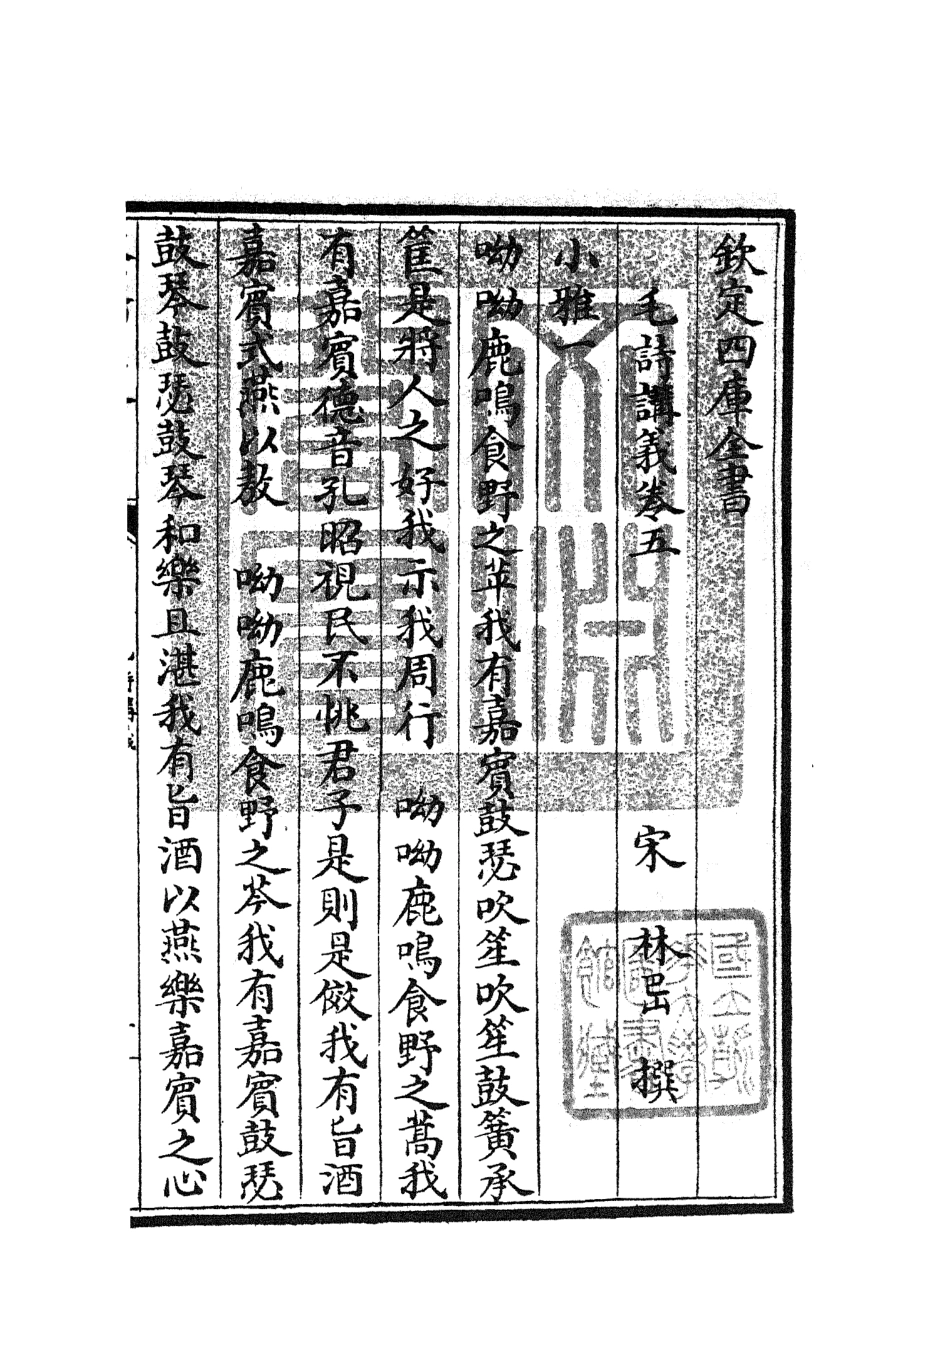 欽定四庫全書
毛詩講義卷五　宋　林岊　撰
小雅一
呦呦鹿鳴食野之苹我有嘉賓鼓瑟吹笙吹笙鼓簧承
筐是將人之好我示我周行　呦呦鹿鳴食野之蒿我
有嘉賓德音孔昭視民不恌君子是則是傚我有旨酒
嘉賓式燕以敖　呦呦鹿鳴食野之芩我有嘉賓鼓瑟
鼓琴鼓瑟鼓琴和樂且湛我有旨酒以燕樂嘉賓之心